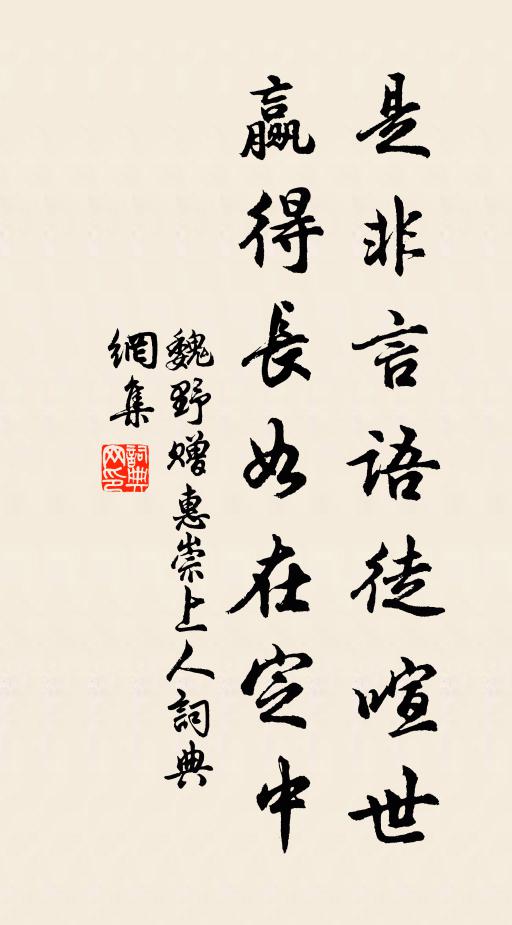 是非言語徒喧世
贏得長如在定中
魏野贈惠崇上人詞典
網集
詞典
网印